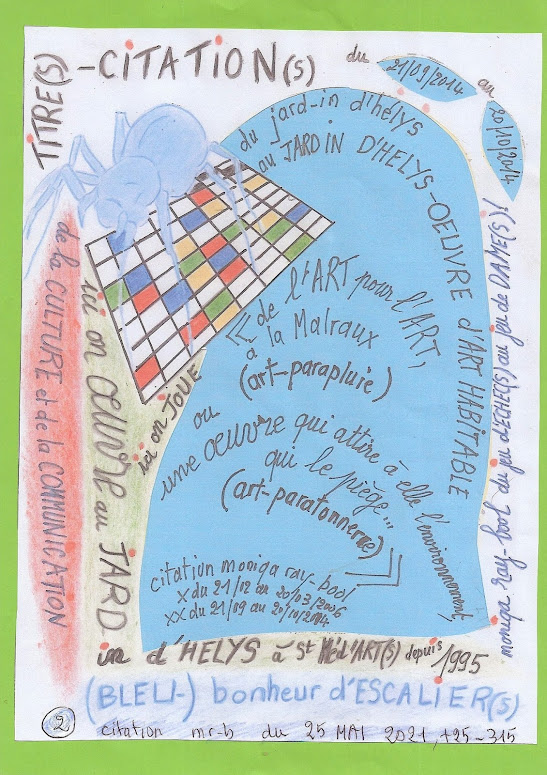 TITRE(S)-CITATION(S)
du
21/09/2014
au
20/10/2014
du jard-in d'hélys
au JARDIN D'HELYS-OEUVRE d'ART HABITABLE
« de l'ART pour l'ART,
à la Malraux
(art-parapluie)
ou
une OEUVRE qui attire à elle l'environnement,
qui le piège...
(art-paratonnerre) »
citation moniqa ray-bool
x du 21/12 au 20/03/2006
xx du 21/09 au 20/10/2014
moniqa ray-bool du jeu d'ECHE(S) au jeu de DAME(S)!
de la CULTURE et de la COMMUNICATION
ici on JOUE
ici on OEUVRE au JARD-
in d'HELYS à St Méd'ART(S) depuis 1995
(BLEU-) bonheur d'ESCALIER(S)
2 citation mr-b du 25 MAI 2021, +25-315